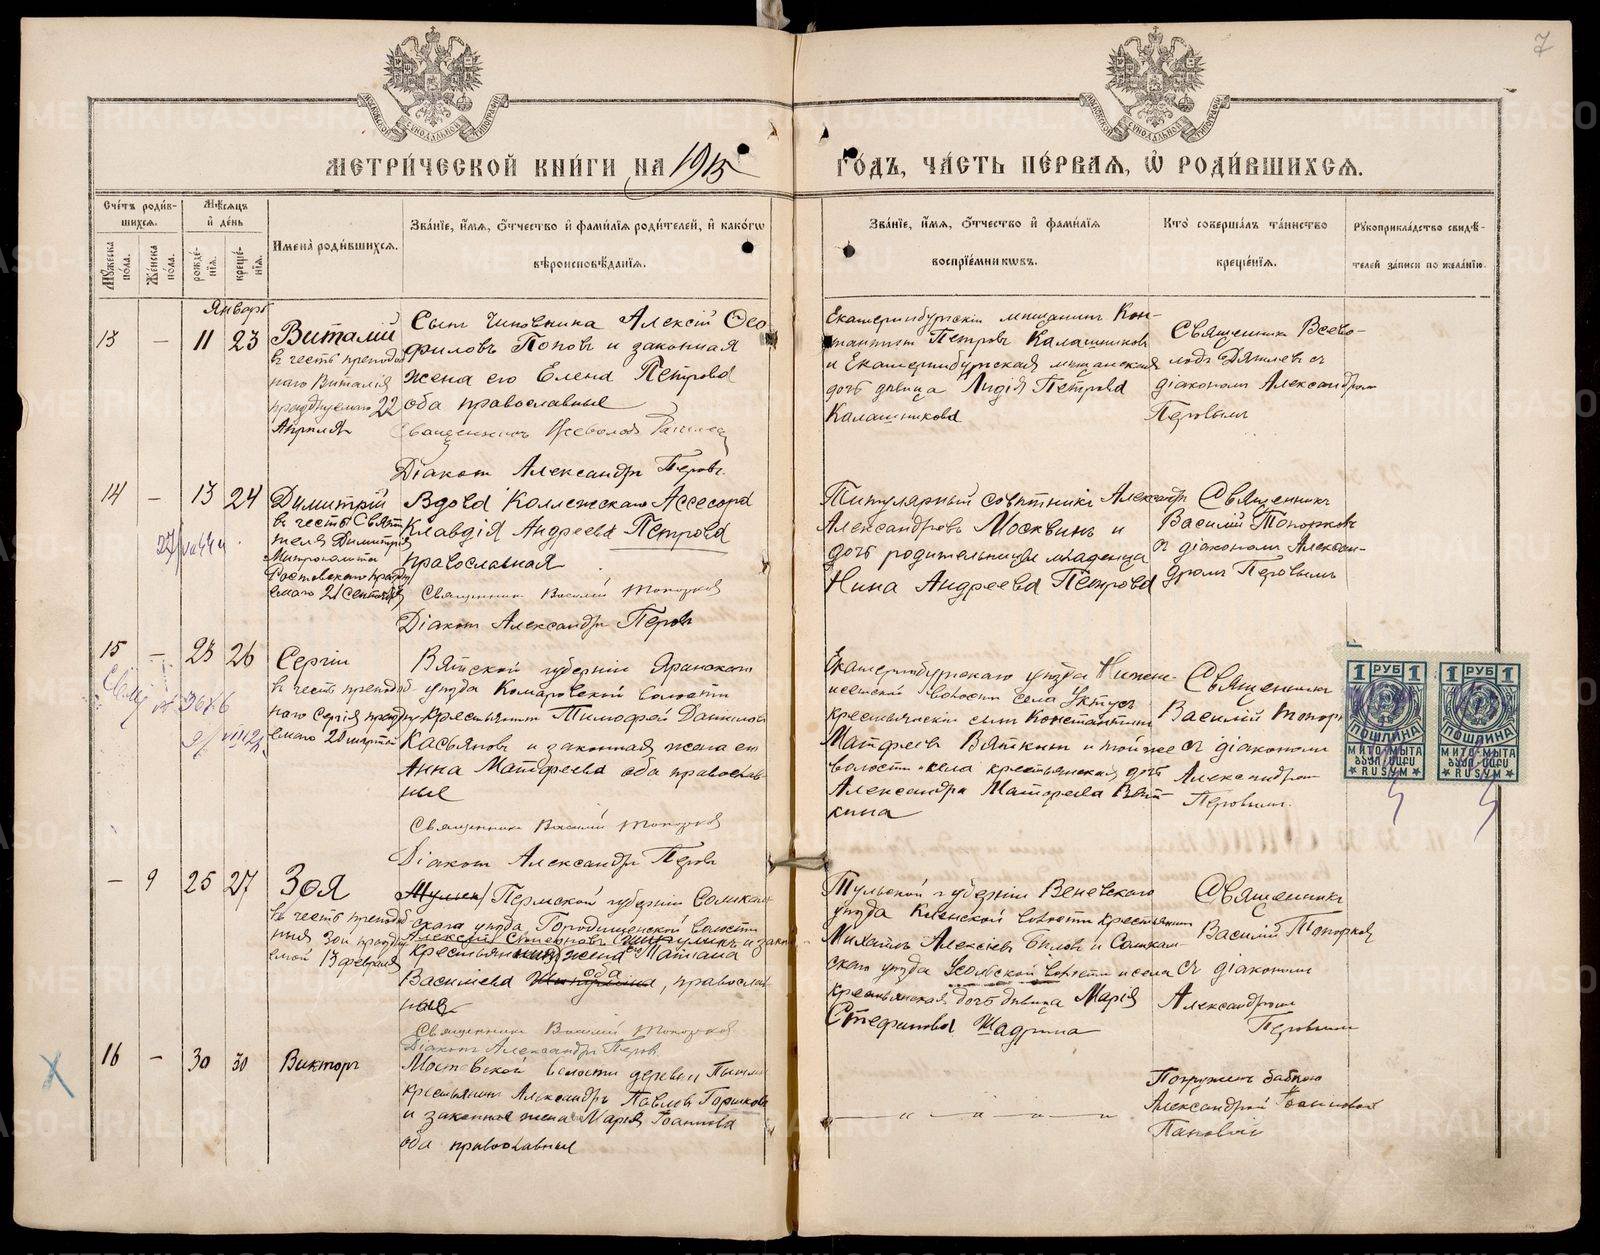 7
МОСКОВСКОЙ СѴНОДАЛЬНОЙ ТИПОГРАФІИ
МОСКОВСКОЙ СѴНОДАЛЬНОЙ ТИПОГРАФІИ
МЕТРИ́ЧЕСКОЙ КНИ́ГИ НА 1915 ГО́ДЪ, ЧА́СТЬ ПЕ́РВАЯ, Ѡ҆ РОДИ́ВШИХСЯ.
Сче́тъ роди́в-
шихся.
Мѣ́сяцъ
и҆ де́нь
Мꙋ́жеска
по́ла.
Же́нска
по́ла.
рожде́-
нїя.
креще́-
нїя.
И҆мена̀ роди́вшихся.
Зва́нїе, и҆́мя, ѻ҆́тчество и҆ фами́лїя роди́телей, и҆ како́гѡ
вѣроисповѣ́данїя.
Зва́нїе, и҆́мя, ѻ҆́тчество и҆ фами́лїя
воспрїе́мникѡвъ.
Кто̀ соверша́лъ та́инство
креще́нїя.
Рꙋкоприкла́дство свидѣ́-
телей за́писи по жела́нїю.
Январь
13 — 11 23
Виталій
въ честь преподоб
наго Виталія
празднуемаго 22
Апрѣля
Сынъ Чиновника Алексій Ѳео
филовъ Поповъ и законная
жена его Елена Петрова
оба православные
Священникъ Всеволодъ
Діаконъ Александръ Перовъ.
Екатеринбургскій мѣщанинъ Кон-
стантинъ Петровъ Калашниковъ
и Екатеринбургская мѣщанская
дочь дѣвица Лидія Петрова
Калашникова
Священникъ Всево-
лодъ съ
діакономъ Александромъ
Перовымъ
14 — 13 24
Димитрій
въ честь Святи
теля Димитрія
Митрополита
Ростовскаго праздну
емаго 21 Сентября
Вдова Коллежскаго Ассесора
Клавдія Андреева Петрова
православная
Священникъ Василій Топорковъ
Діаконъ Александръ Перовъ
Титулярный совѣтникъ Александръ
Александровъ Москвинъ и
дочь родительницы младенца
Нина Андреева Петрова
Священникъ
Василій Топорковъ
съ діакономъ Алексан-
дромъ Перовымъ
15 — 23 26
Сергій
въ честь преподоб
наго Сергія праздну
емаго 20 марта
Вятской губерніи Яранскаго
уѣзда Комаровской волости
крестьянинъ Тимофей Даниловъ
Касьяновъ и законная жена его
Анна Матфеева оба православ
ные
Священникъ Василій Топорковъ
Діаконъ Александръ Перовъ
Екатеринбургскаго уѣзда Нижне-
исетской волости села Уктусъ
крестьянскій сынъ Константинъ
Матфеевъ Вяткинъ и той же
волости и села крестьянская дочь
Александра Матфеева Вят-
кина
Священникъ
Василій Топорк
съ діакономъ
Александромъ
Перовымъ.
1 РУБ 1
ПОШЛИНА
МИТО-МЫТА
RUSYM
1 РУБ 1
ПОШЛИНА
МИТО-МЫТА
RUSYM
— 9 25 27
Зоя
въ честь преподоб
ныя Зои праздну
емой 13 февраля
Пермской губерніи Соликам
скаго уѣзда Городищенской волости
Алексій Стефановъ и зако
крестьян жена его Татіана
Василіева оба, православ
ные
Священникъ Василій Топорковъ
Діаконъ Александръ Перовъ.
Тульской губерніи Веневскаго
уѣзда волости крестьянинъ
Михаилъ Алексіевъ Бѣловъ и Соликам-
скаго уѣзда Усольской волости и села
крестьянская дочь дѣвица Марія
Стефанова Шадрина
Священникъ
Василій Топорковъ
съ діакономъ
Александромъ
Перовымъ
16 — 30 30
Викторъ
Мостовской волости деревни
крестьянинъ Александръ Павловъ Горшковъ
и законная жена Марія Іоаннова
оба православные
Погруженъ бабкою
Александрой Іоанновой
Пановой